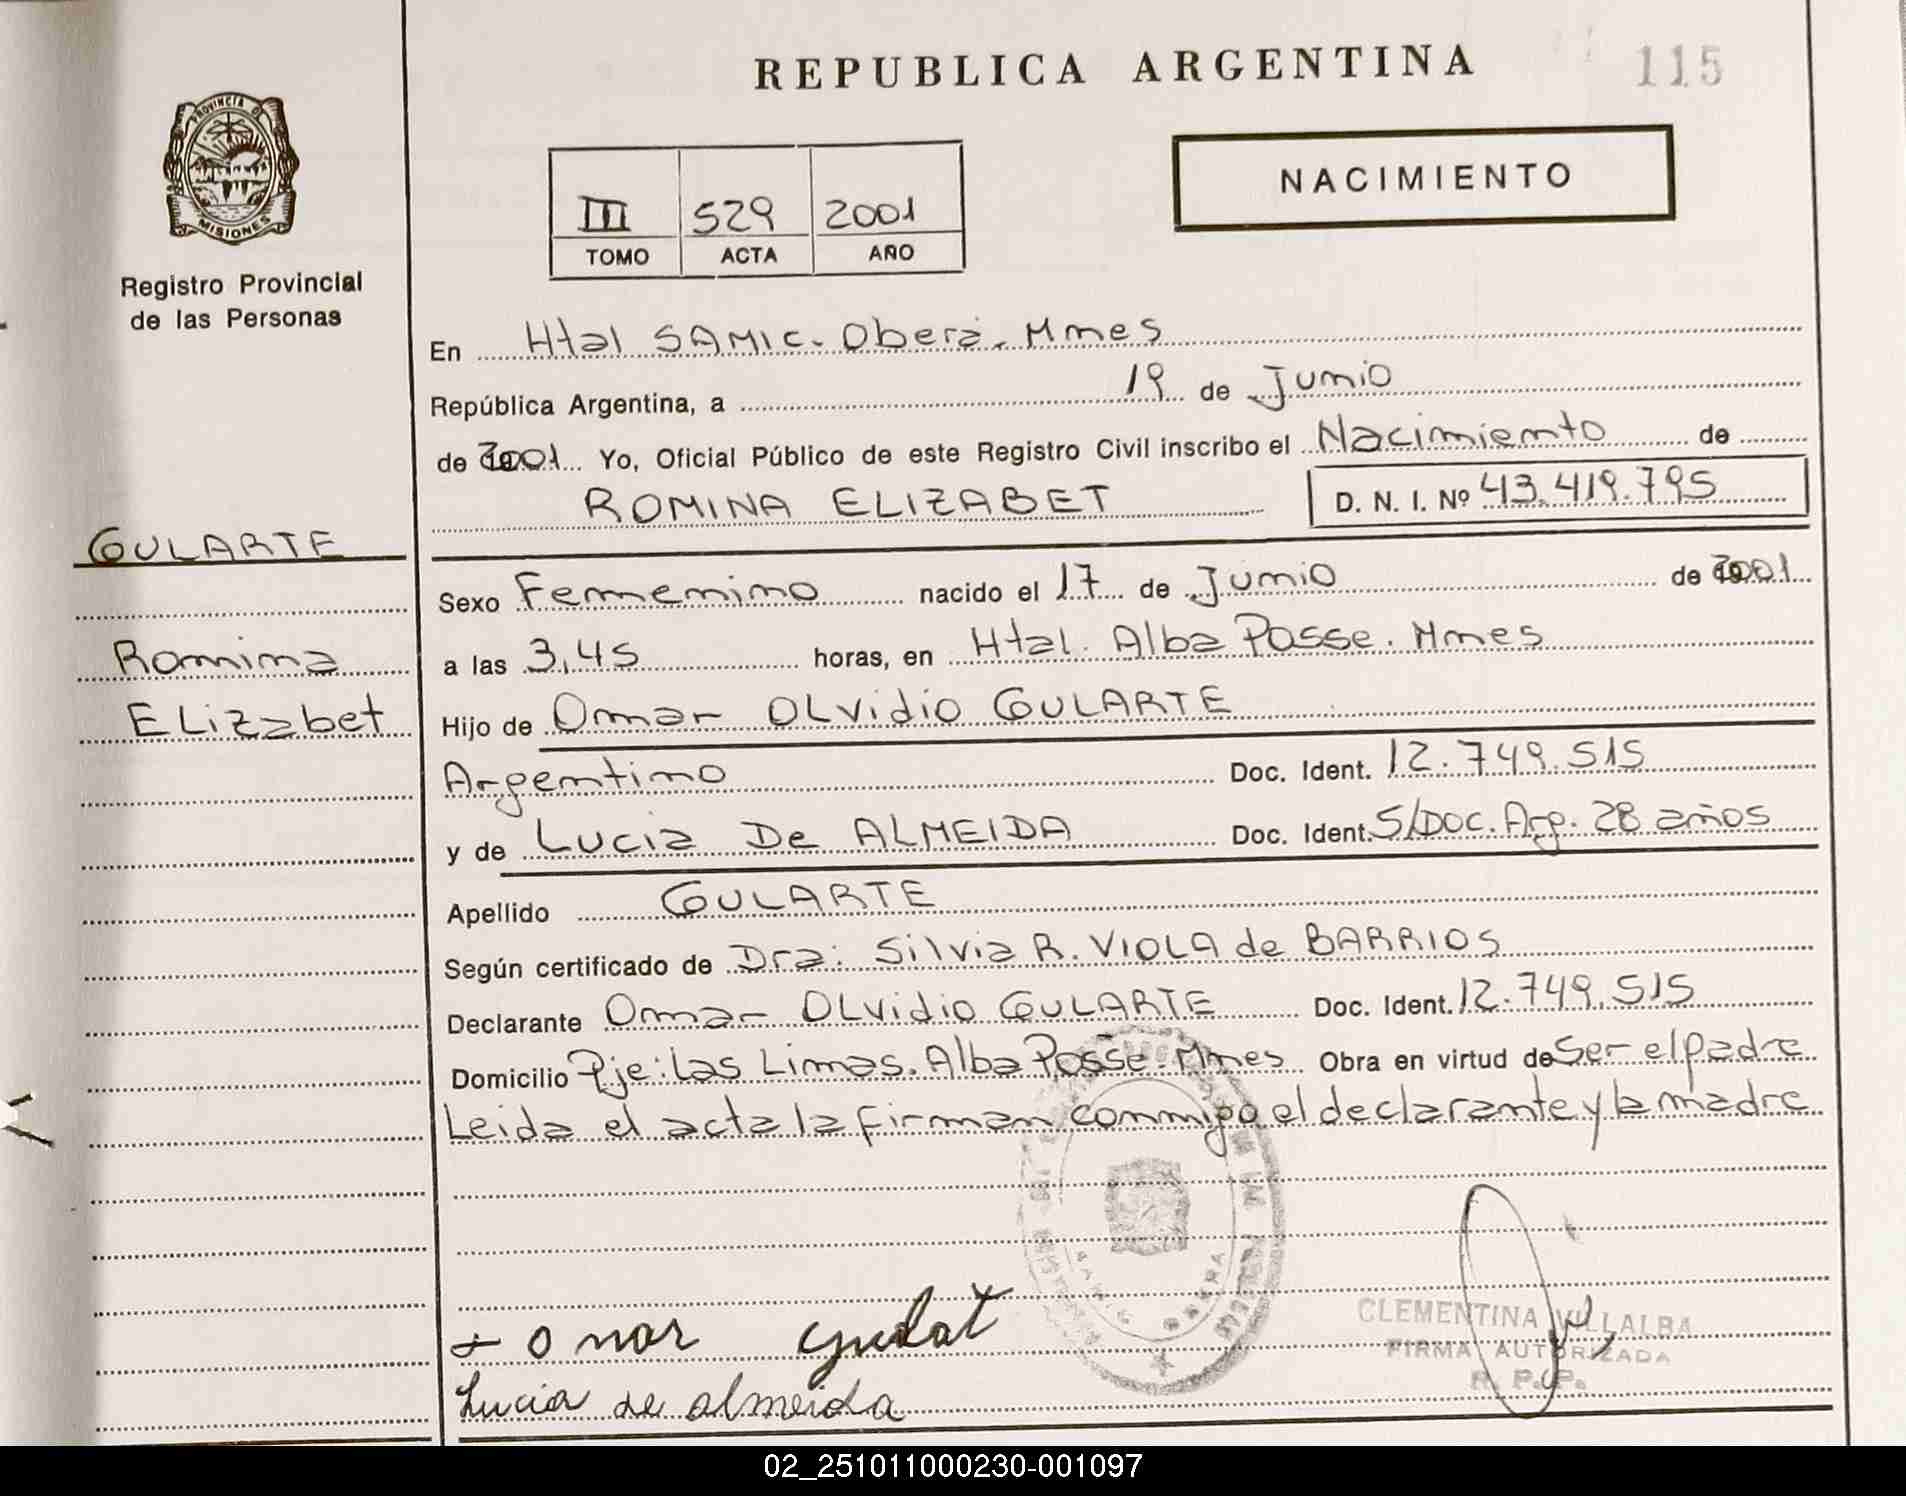 REPUBLICA ARGENTINA
115
PROVINCIA DE
MISIONES
Registro Provincial
de las Personas
NACIMIENTO
III 529 2001
TOMO ACTA AÑO
En Htal SAMIC. Oberá. Mnes
República Argentina, a 19 de Junio
de 2001 Yo, Oficial Público de este Registro Civil inscribo el Nacimiento de
ROMINA ELIZABET D. N. I. Nº 43.419.795
GULARTE
Romina
ELizabet
Sexo Femenino nacido el 17 de Junio de 2001
a las 3,45 horas, en Htal. Alba Posse. Mnes
Hijo de Omar OLvidio GULARTE
Argentino Doc. Ident. 12.749.515
y de Lucia De ALMEIDA Doc. Ident. S/DOC. Arg. 28 años
Apellido GULARTE
Según certificado de Dra: Silvia R. VIOLA de BARRIOS
Declarante Omar OLvidio GULARTE Doc. Ident. 12.749.515
Domicilio Pje: Las Limas. Alba Posse. Mnes Obra en virtud de Ser el padre
Leida el acta la firman conmigo el declarante y la madre
+ o mar
Lucia de almeida
CLEMENTINA VILLALBA
FIRMA AUTORIZADA
R. P. P.
02_251011000230-001097